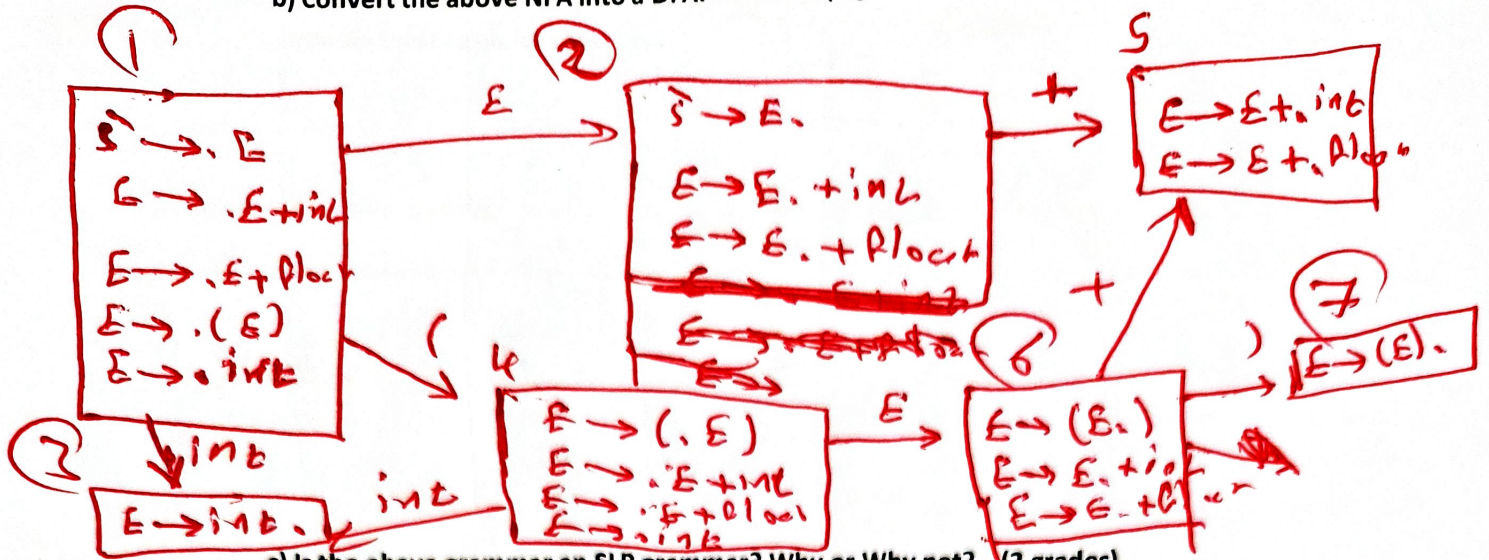 b) Convert the above NFA into a DFA.
1
S' → . E
E → . E + int
E → . E + float
E → . ( E )
E → . int
E
2
S' → E .
E → E . + int
E → E . + float
+
5
E → E + . int
E → E + . float
(
int
3
E → int .
4
E → ( . E )
E → . E + int
E → . E + float
E → . int
int
E
6
E → ( E . )
E → E . + int
E → E . + float
+
)
7
E → ( E ) .
c) Is the above grammar an SLR grammar? Why or Why not? (2 grades)